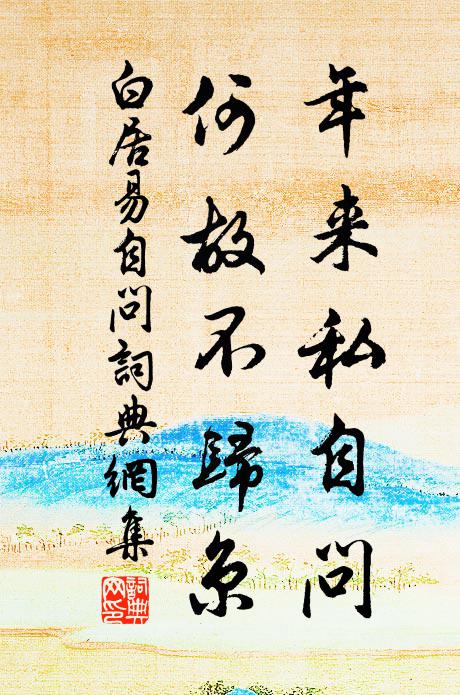 年来私自問
何故不歸京
白居易自問詞典網集
詞典
网印